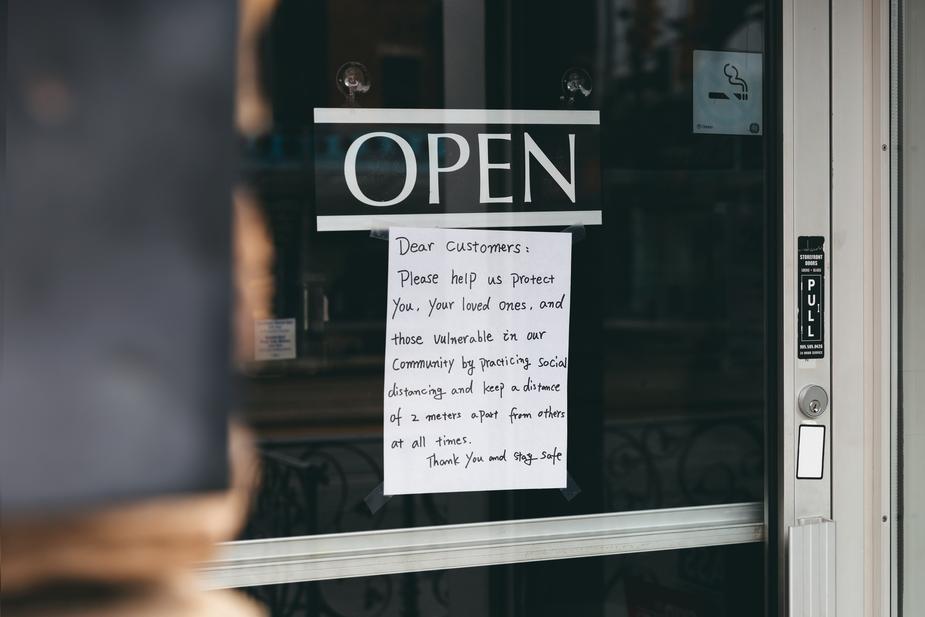 OPEN
Dear Customers:
Please help us protect
You, Your loved ones, and
those vulnerable in our
Community by practicing social
distancing and keep a distance
of 2 meters apart from others
at all times.
Thank You and stay safe
STOREFRONT
DOORS
PULL